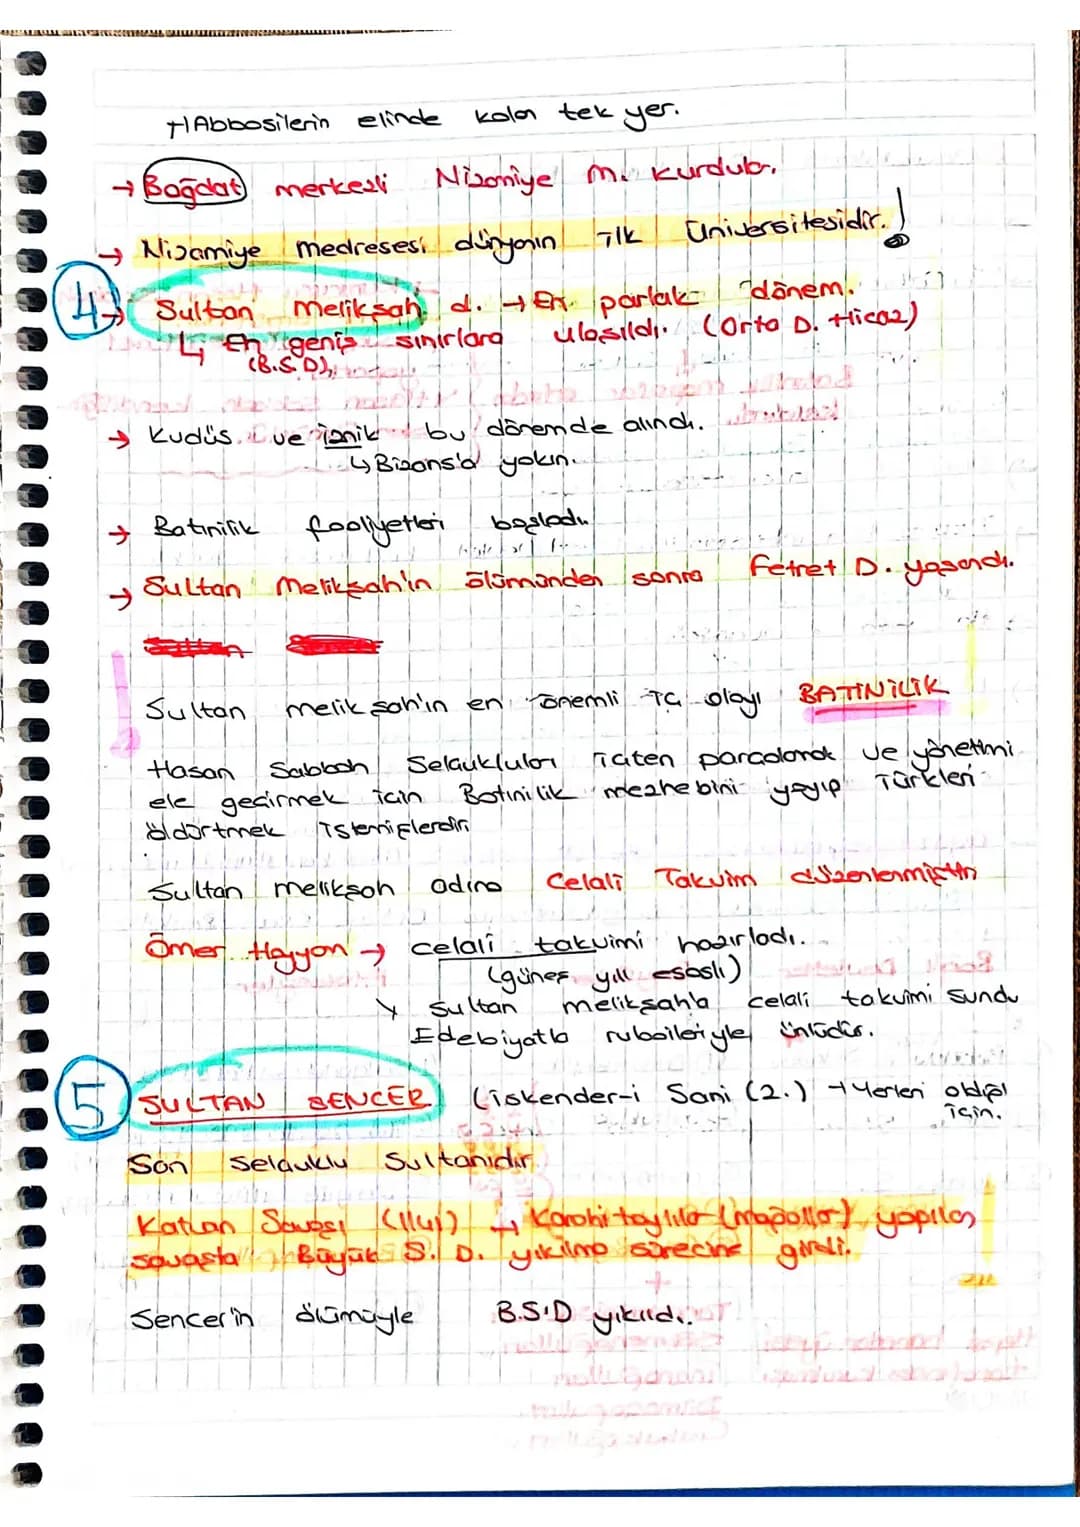 →Abbasilerin elinde kalan tek yer.
→ Bağdat merkezli Nizamiye M. kurdular.
→ Nizamiye medresesi dünyanın ilk Üniversitesidir.!
4 → Sultan Melikşah d. → En parlak dönem.
↳ En geniş sınırlara ulaşıldı. (Orta D. Hicaz)
(B.S.D)
→ Kudüs ve iznik bu dönemde alındı.
↳ Bizans'a yakın.
→ Batınilik faaliyetleri başladı.
→ Sultan Melikşah'ın ölümünden sonra Fetret D. yaşandı.
Sultan melikşah'ın en önemli iç olayı BATINİLİK
Hasan Sabbah Selçukluları içten parçalamak ve yönetimi
ele geçirmek için Batınilik mezhebini yayıp Türkleri
öldürtmek istemişlerdir.
Sultan melikşah adına Celali Takvim düzenlenmiştir
Ömer Hayyam → celali takvimi hazırladı.
(güneş yılı esaslı)
↘ Sultan melikşah'a celali takvimi sundu
Edebiyatla rubaileriyle ünlüdür.
5 SULTAN SENCER (iskender-i Sani (2.) → Yerleri aldığı
için.
Son Selçuklu Sultanıdır.
Katvan Savaşı (1141) → Karahitaylılar (moğollar) yapılan
savaşta Büyük S. D. yıkılma sürecine girdi.
Sencer'in ölümüyle B.S.D yıkıldı.